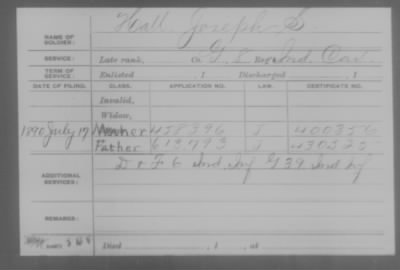 Hall, Joseph S.
NAME OF SOLDIER:
SERVICE: Late rank, Co. G, 8 Reg't Ind. Cav.
TERM OF SERVICE: Enlisted , 1 Discharged , 1
DATE OF FILING. CLASS. APPLICATION NO. LAW. CERTIFICATE NO.
Invalid,
Widow,
1890 July 17 Mother 458396 J 400356
Father 613,793 J 430525
ADDITIONAL SERVICES: D & F 6 Ind Inf G 39 Ind Inf
REMARKS:
Died , 1 , at